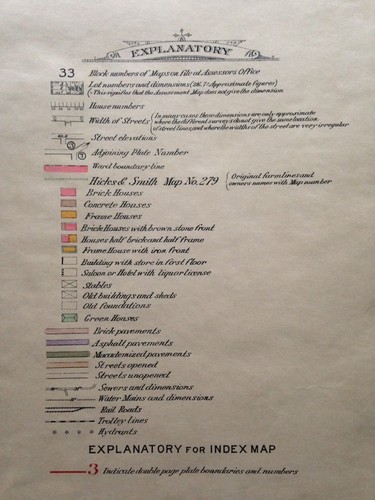 EXPLANATORY
33 Block numbers of Maps on file at Assessors Office
Lot numbers and dimensions
This signifies that the Assessment Map does not give the dimension
House numbers
Width of Streets In many cases these dimensions are only approximate
where the different surveys should give the same location
of street lines and where the widths of the street are very irregular
Street elevations
Adjoining Plate Number
Ward boundary line
Hicks & Smith Map No. 279 Original farm lines and
owners names with Map number
Brick Houses
Concrete Houses
Frame Houses
Brick Houses with brown stone front
Houses half brick and half frame
Frame House with iron front
Building with store in first floor
Saloon or Hotel with liquor license
Stables
Old buildings and sheds
Old foundations
Green Houses
Brick pavements
Asphalt pavements
Macadamized pavements
Streets opened
Streets unopened
Sewers and dimensions
Water Mains and dimensions
Rail Roads
Trolley Lines
Hydrants
EXPLANATORY FOR INDEX MAP
3 Indicate double page plate boundaries and numbers